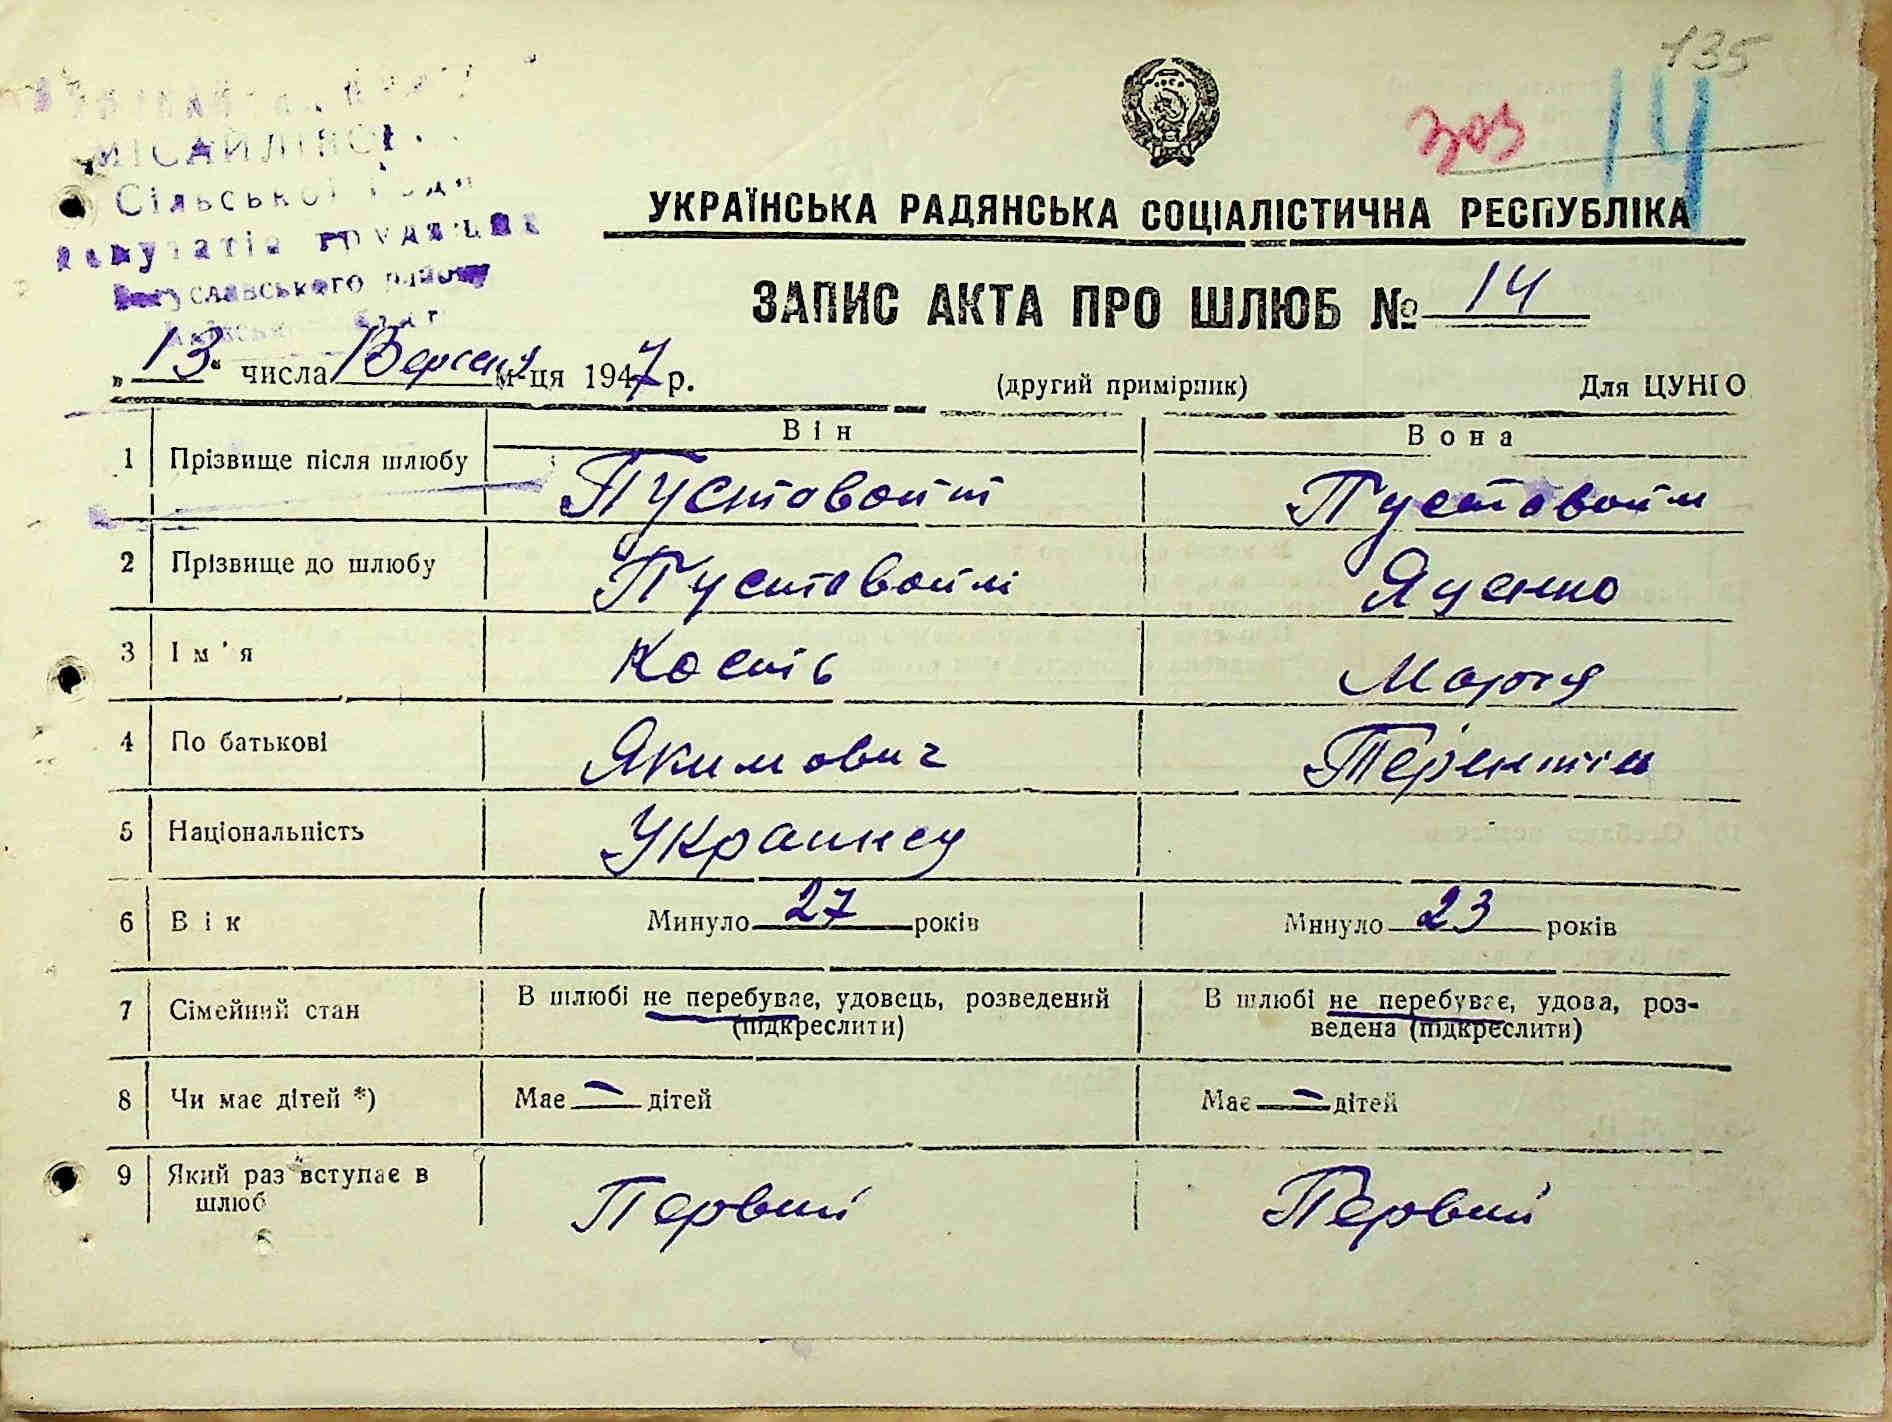 135
303 14
МІСАЙЛІВСЬ
Сільської Ради
депутатів трудящих
Богуславського району
УКРАЇНСЬКА РАДЯНСЬКА СОЦІАЛІСТИЧНА РЕСПУБЛІКА
ЗАПИС АКТА ПРО ШЛЮБ № 14
„13“ числа Вересня м-ця 1947 р. (другий примірник) Для ЦУНГО
Він Вона
1 Прізвище після шлюбу Пустовойт Пустовойт
2 Прізвище до шлюбу Пустовойт Яценко
3 Ім'я Кость Марія
4 По батькові Якимович Терентіи
5 Національність Украинсу
6 Вік Минуло 27 років Минуло 23 років
7 Сімейний стан В шлюбі не перебуває, удовець, розведений В шлюбі не перебуває, удова, роз-
(підкреслити) ведена (підкреслити)
8 Чи має дітей *) Має — дітей Має — дітей
9 Який раз вступає в Первий Первий
шлюб